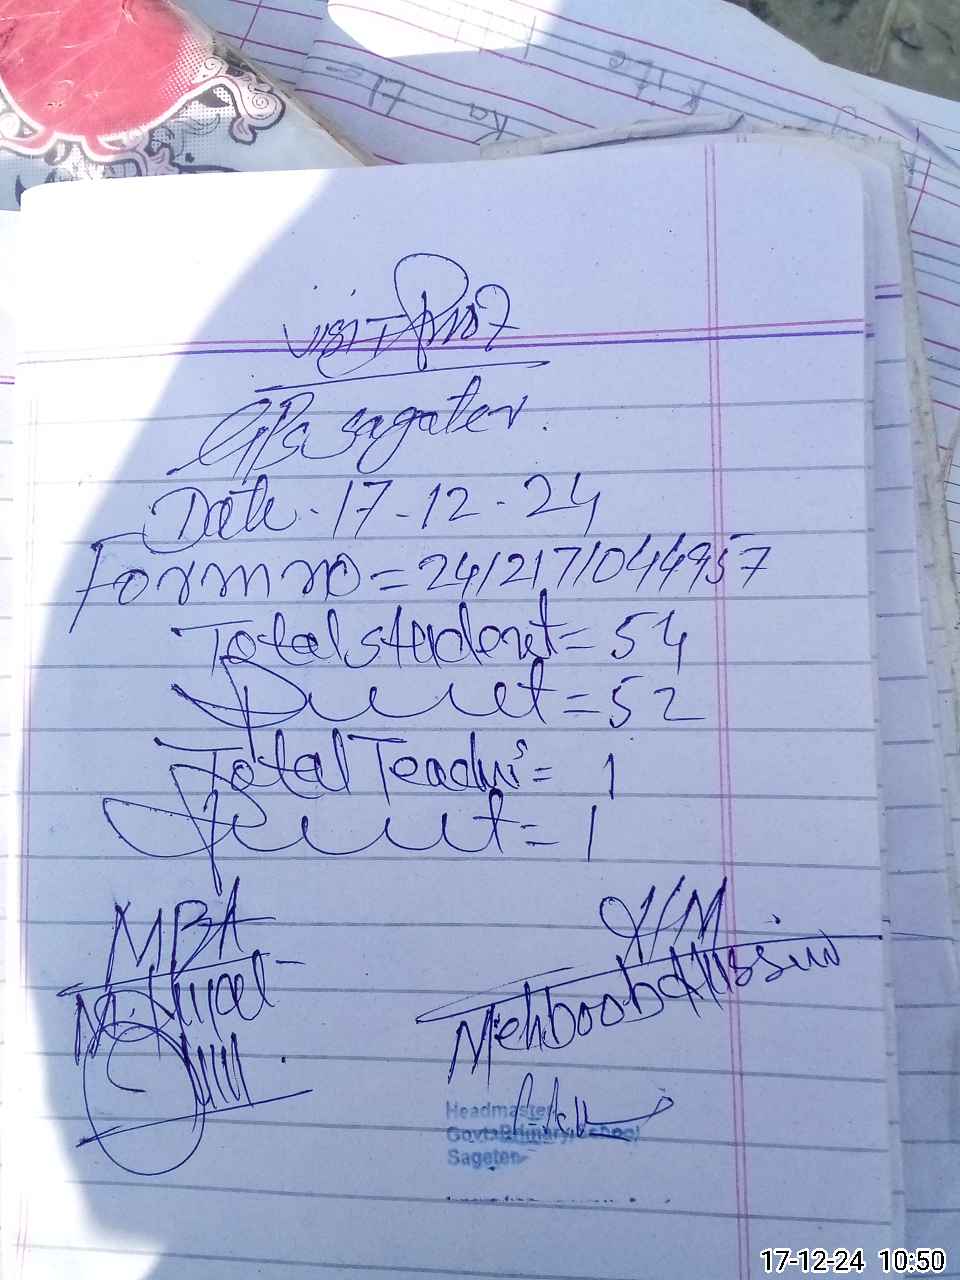 Visit Proof
GPS Sagaten.
Date. 17-12-24
Form no = 2412171044957
Total student = 54
Present = 52
Total Teacher's = 1
Present = 1
MBA
H/M
Mehboob Hussain
Headmaster
Govt. Primary School
Sageten
17-12-24 10:50